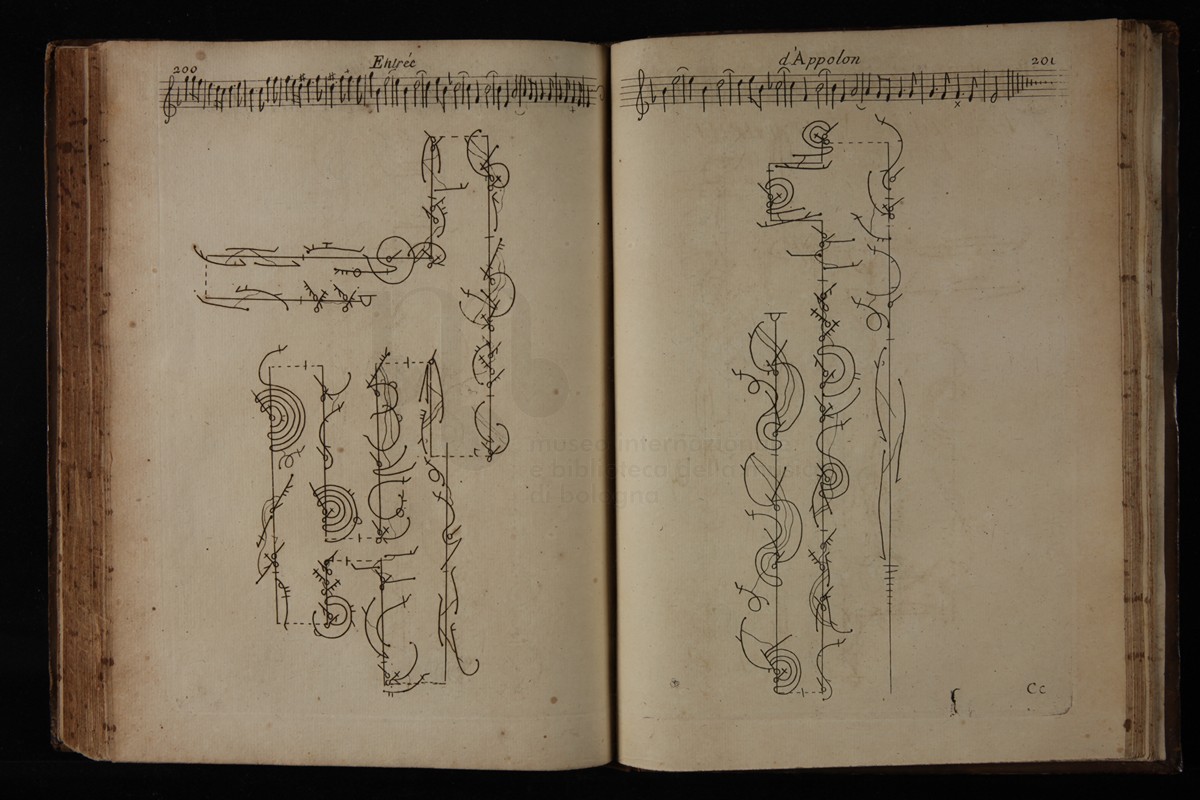 200
Entrée
d'Appolon
201
museo internazionale
e biblioteca della musica
di bologna
Cc